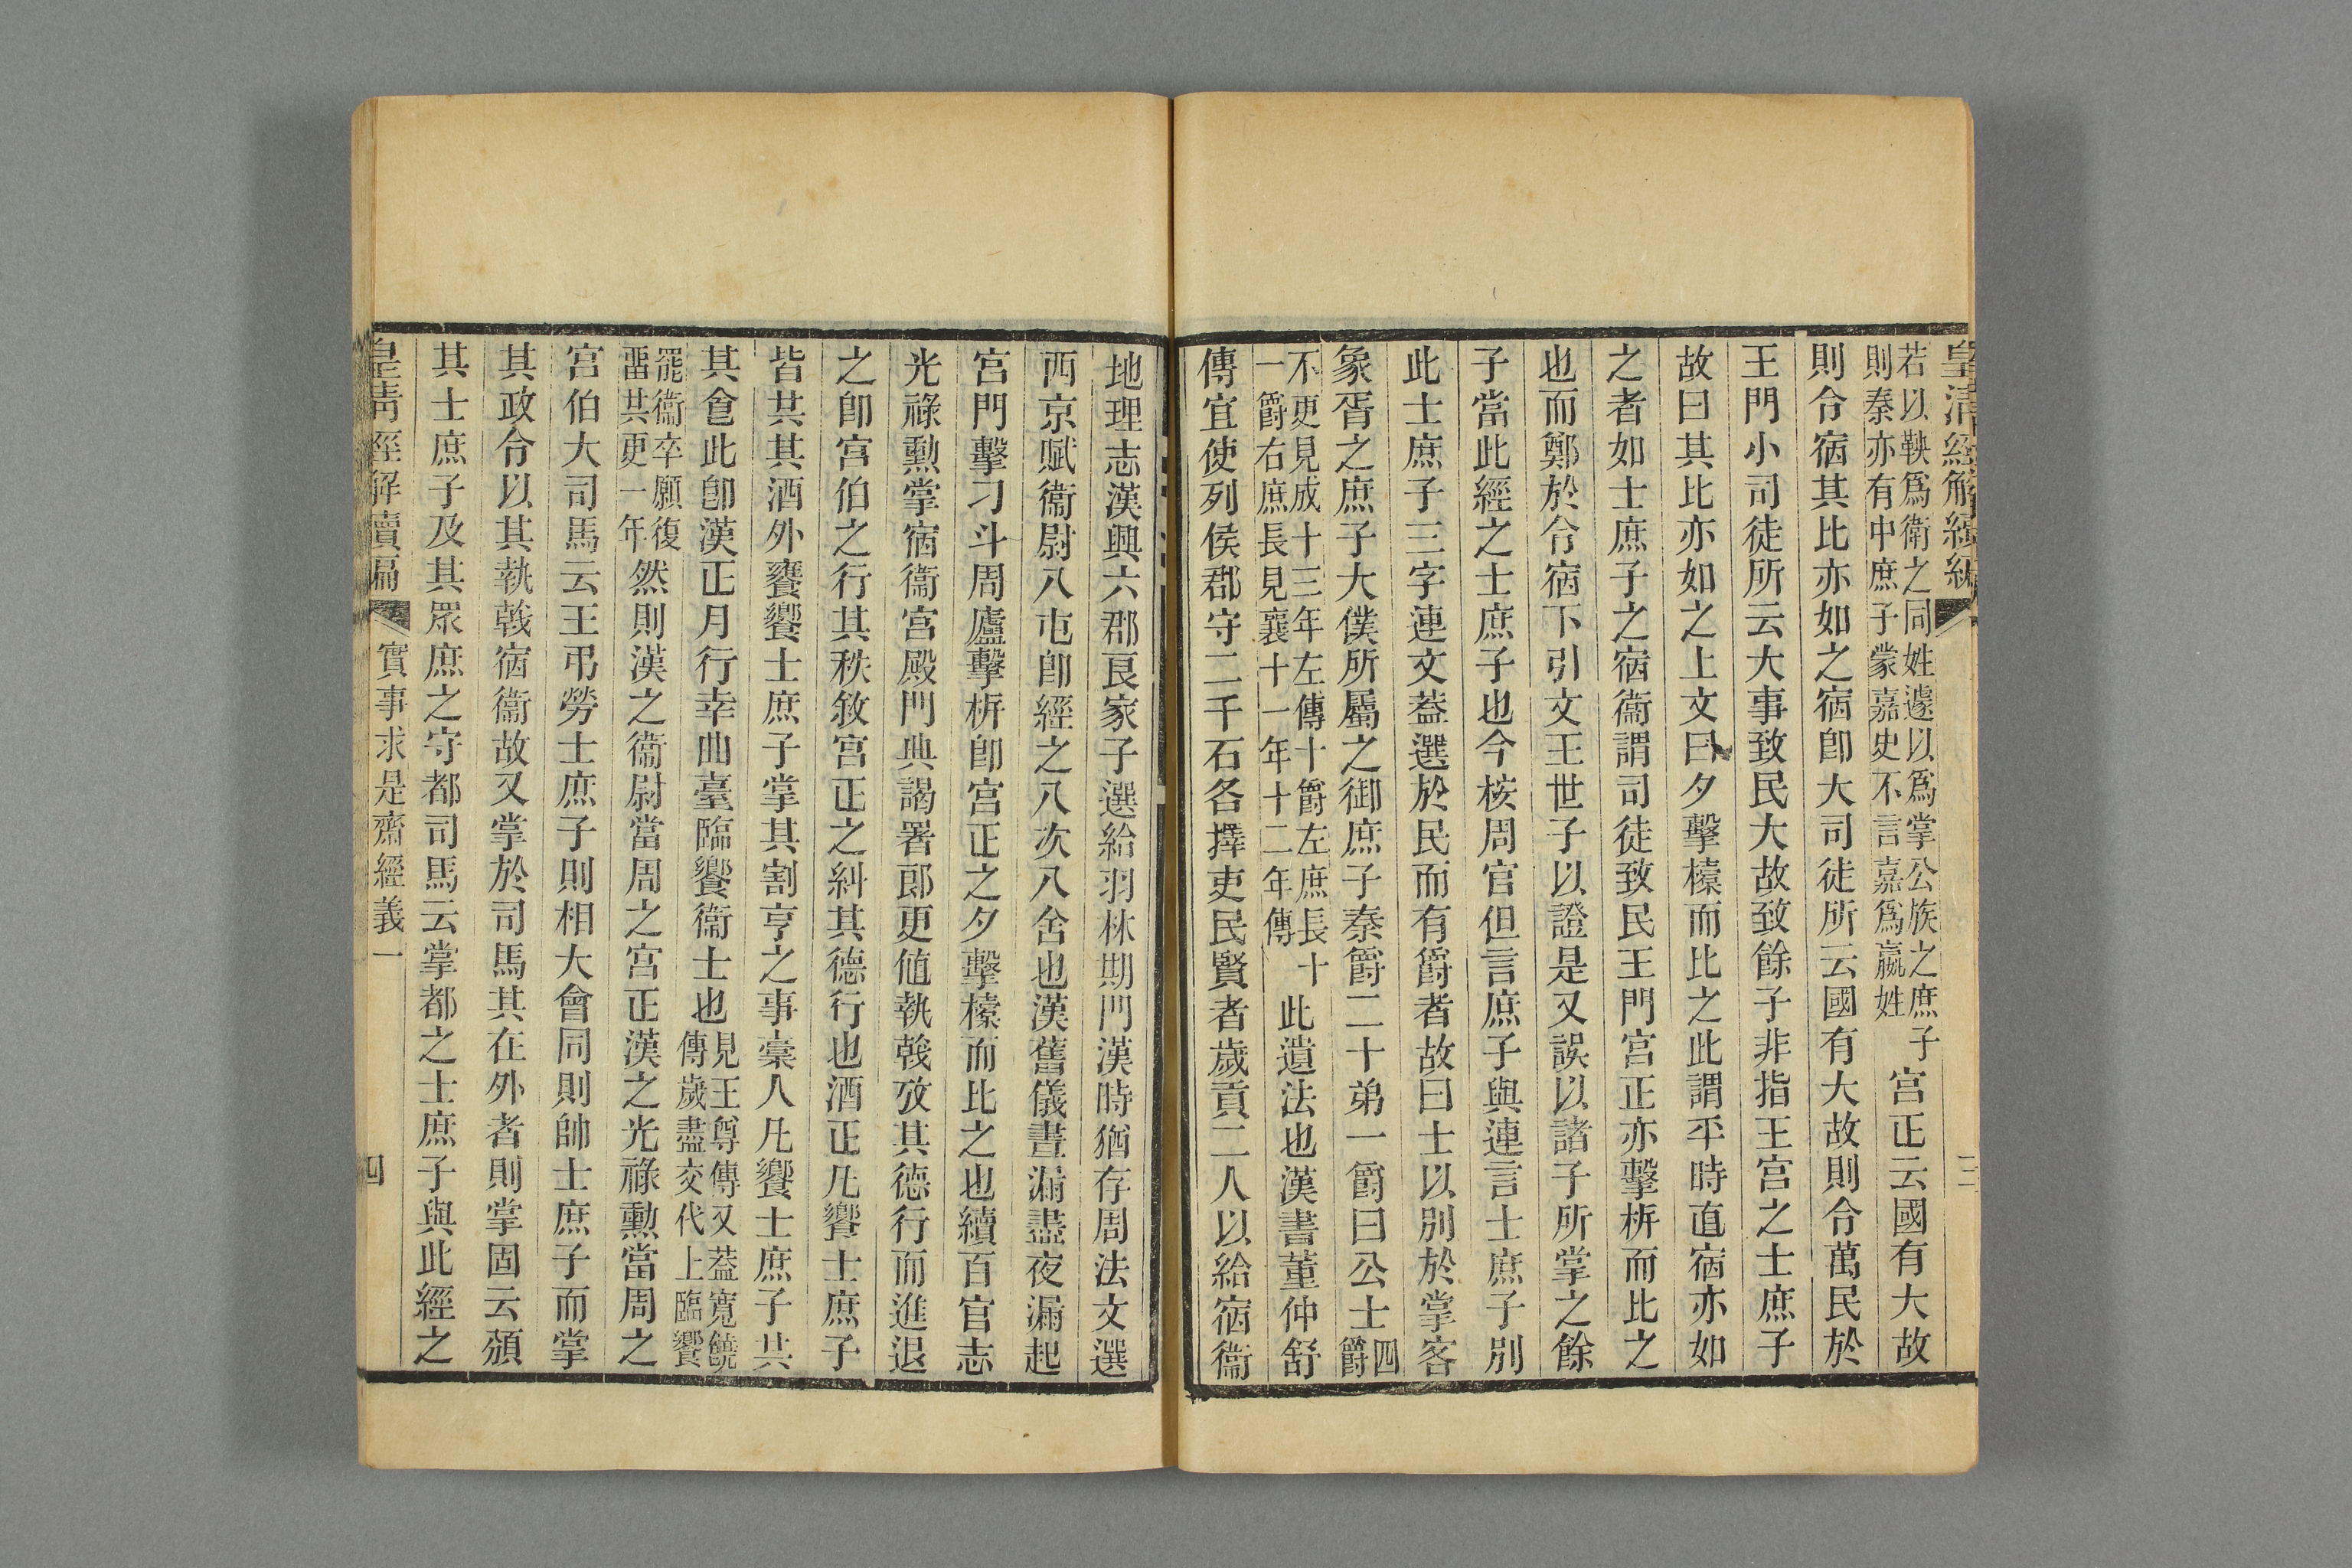 皇清經解續編
三
若以鞅爲衛之同姓遽以爲掌公族之庶子
則秦亦有中庶子蒙嘉史不言嘉爲嬴姓
宮正云國有大故
則令宿其比亦如之宿卽大司徒所云國有大故則令萬民於
王門小司徒所云大事致民大故致餘子非指王宮之士庶子
故曰其比亦如之上文曰夕擊㯓而比之此謂平時直宿亦如
之者如士庶子之宿衞謂司徒致民王門宮正亦擊柝而比之
也而鄭於令宿下引文王世子以證是又誤以諸子所掌之餘
子當此經之士庶子也今核周官但言庶子與連言士庶子別
此士庶子三字連文葢選於民而有爵者故曰士以別於掌客
象胥之庶子大僕所屬之御庶子秦爵二十弟一爵曰公士
四爵
不更見成十三年左傳十爵左庶長十
一爵右庶長見襄十一年十二年傳
此遺法也漢書董仲舒
傳宜使列侯郡守二千石各擇吏民賢者歲貢二人以給宿衞
地理志漢興六郡良家子選給羽林期門漢時猶存周法文選
西京賦衞尉八屯卽經之八次八舍也漢舊儀晝漏盡夜漏起
宮門擊刁斗周廬擊柝卽宮正之夕擊㯓而比之也續百官志
光祿勳掌宿衞宮殿門戶典謁署郎更値執戟攷其德行而進退
之卽宮伯之行其秩敘宮正之糾其德行也酒正凡饗士庶子
皆共其酒外饔饗士庶子掌其割亨之事稾人凡饗士庶子共
其食此卽漢正月行幸曲臺臨饗衞士也
見王尊傳又葢寬饒
傳歲盡交代上臨饗
罷衞卒願復
畱共更一年
然則漢之衞尉當周之宮正漢之光祿勳當周之
宮伯大司馬云王弔勞士庶子則相大會同則帥士庶子而掌
其政令以其執戟宿衞故又掌於司馬其在外者則掌固云頒
其士庶子及其眾庶之守都司馬云掌都之士庶子與此經之
皇清經解續編
實事求是齋經義一
四